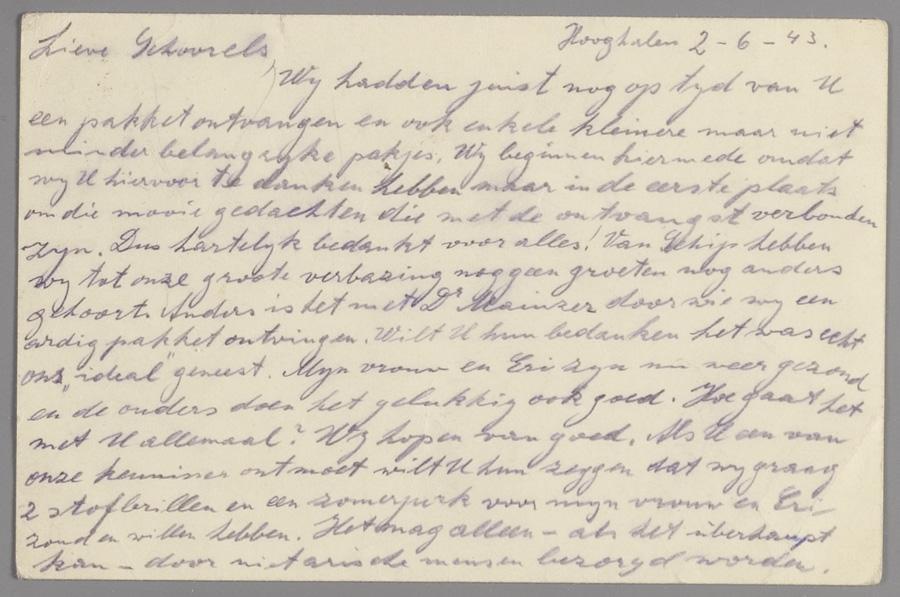 Hooghalen 2-6-43.
Lieve Schoorels
Wy hadden juist nog op tyd van U
een pakket ontvangen en ook enkele kleinere maar niet
minder belangryke pakjes. Wy beginnen hiermede omdat
wy U hiervoor te danken hebben maar in de eerste plaats
om die mooie gedachten die met de ontvangst verbonden
zyn. Dus hartelyk bedankt voor alles! Van Schip hebben
wy tot onze groote verbazing nog geen groeten nog anders
gehoort. Anders is het met Dr Mainzer door wie wy een
ardig pakket ontvingen. Wilt U hun bedanken het was echt
ons "ideal" geweest. Myn vrouw en Eri zyn nu weer gezond
en de ouders doen het gelukkig ook goed. Hoe gaat het
met U allemaal? Wy hopen van goed. Als U een van
onze kennissen ontmoet wilt U hun zeggen dat wy graag
2 stofbrillen en een zomerjurk voor myn vrouw en Eri
zouden willen hebben. Het mag alleen - als het überhaupt
kan - door niet arische mensen bezorgd worden.